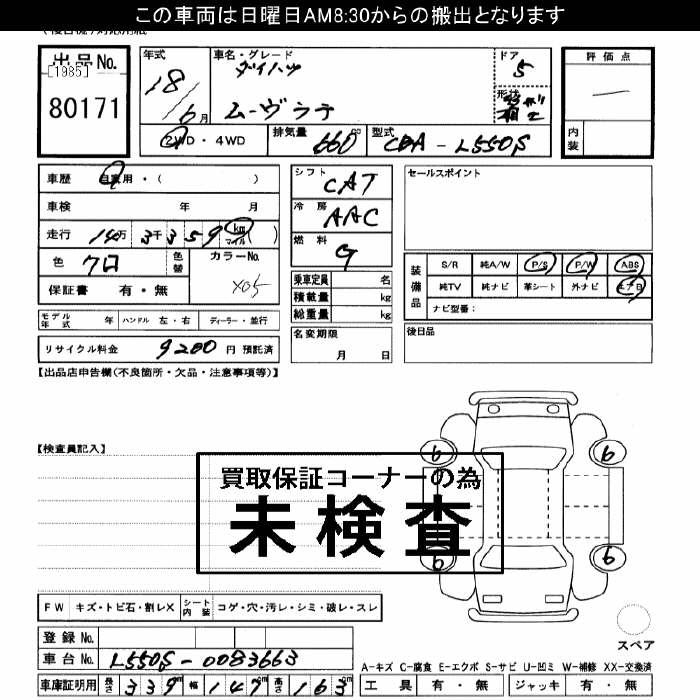 この車両は日曜日AM8:30からの搬出となります
出品No.
[1985]
80171
年式
18/6月
車名・グレード
ダイハツ
ムーヴラテ
ドア
5
形状
評価点
内装
2WD・4WD
排気量 660 cc
型式 CBA - L550S
車歴 自家用・( )
車検 年 月
走行 14万3千359 km マイル ( )
色 クロ
色替
カラーNo.
X05
保証書 有・無
モデル年式 年 ハンドル 左・右 ディーラー・並行
リサイクル料金 9200 円 預託済
シフト CAT
冷房 AAC
燃料 G
乗車定員 名
積載量 kg
総重量 kg
名変期限
月 日
セールスポイント
装備品
S/R 純A/W P/S P/W ABS
純TV 純ナビ 革シート 外ナビ エアB
ナビ型番:
後日品
【出品店申告欄(不良箇所・欠品・注意事項等)】
【検査員記入】
6 6
買取保証コーナーの為
未検査
6 6
FW キズ・トビ石・割レX シート内装 コゲ・穴・汚レ・シミ・破レ・スレ
スペア
登録No.
車台No. L550S-0083663
A-キズ C-腐食 E-エクボ S-サビ U-凹ミ W-補修 XX-交換済
車庫証明用 長さ 339 m 幅 147 m 高さ 163 cm
工具 有・無 ジャッキ 有・無